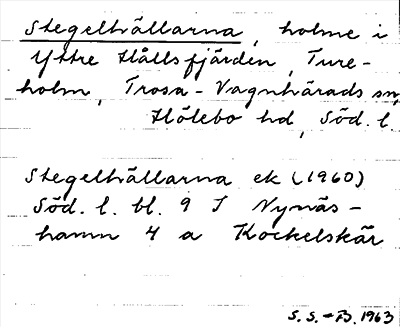 Stegelhällarna, holme i
Yttre Hållsfjärden, Ture-
holm, Trosa-Vagnhärads sn,
Hölebo hd, Söd. l.
Stegelhällarna ek (1960)
Söd. l. bl. 9 I Nynäs-
hamn 4 a Kockelskär
S. S.-B. 1963